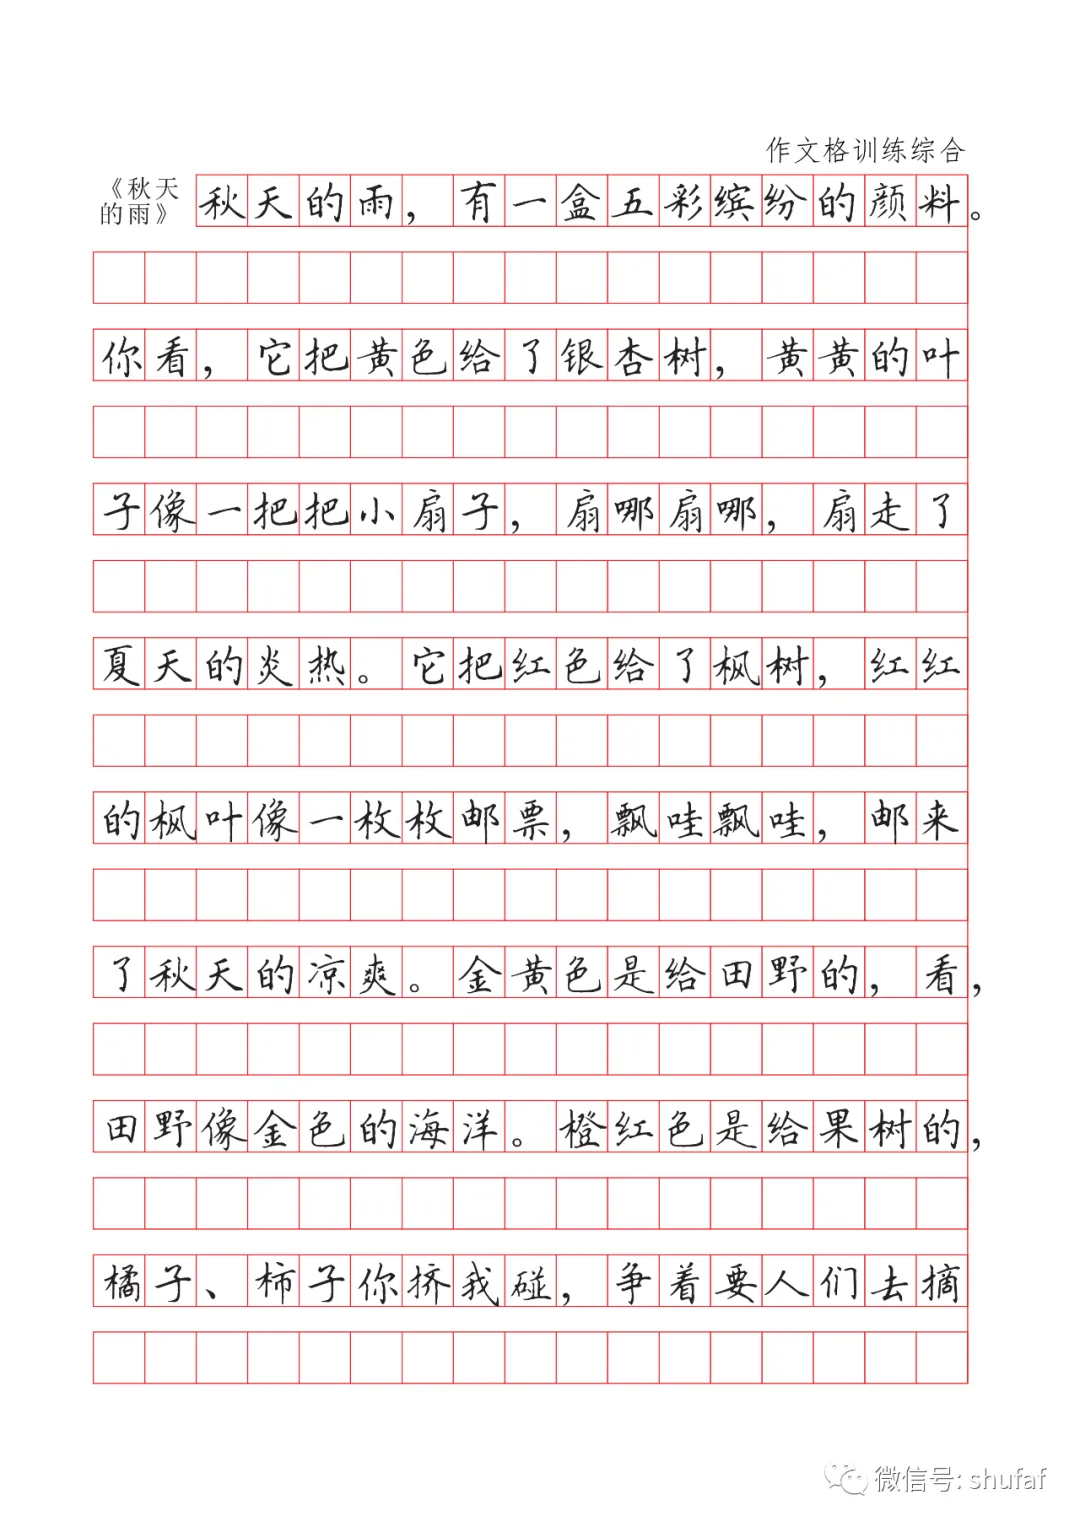 作文格训练综合
《秋天
的雨》
秋天的雨，有一盒五彩缤纷的颜料。
你看，它把黄色给了银杏树，黄黄的叶
子像一把把小扇子，扇哪扇哪，扇走了
夏天的炎热。它把红色给了枫树，红红
的枫叶像一枚枚邮票，飘哇飘哇，邮来
了秋天的凉爽。金黄色是给田野的，看，
田野像金色的海洋。橙红色是给果树的，
橘子、柿子你挤我碰，争着要人们去摘
微信号: shufaf